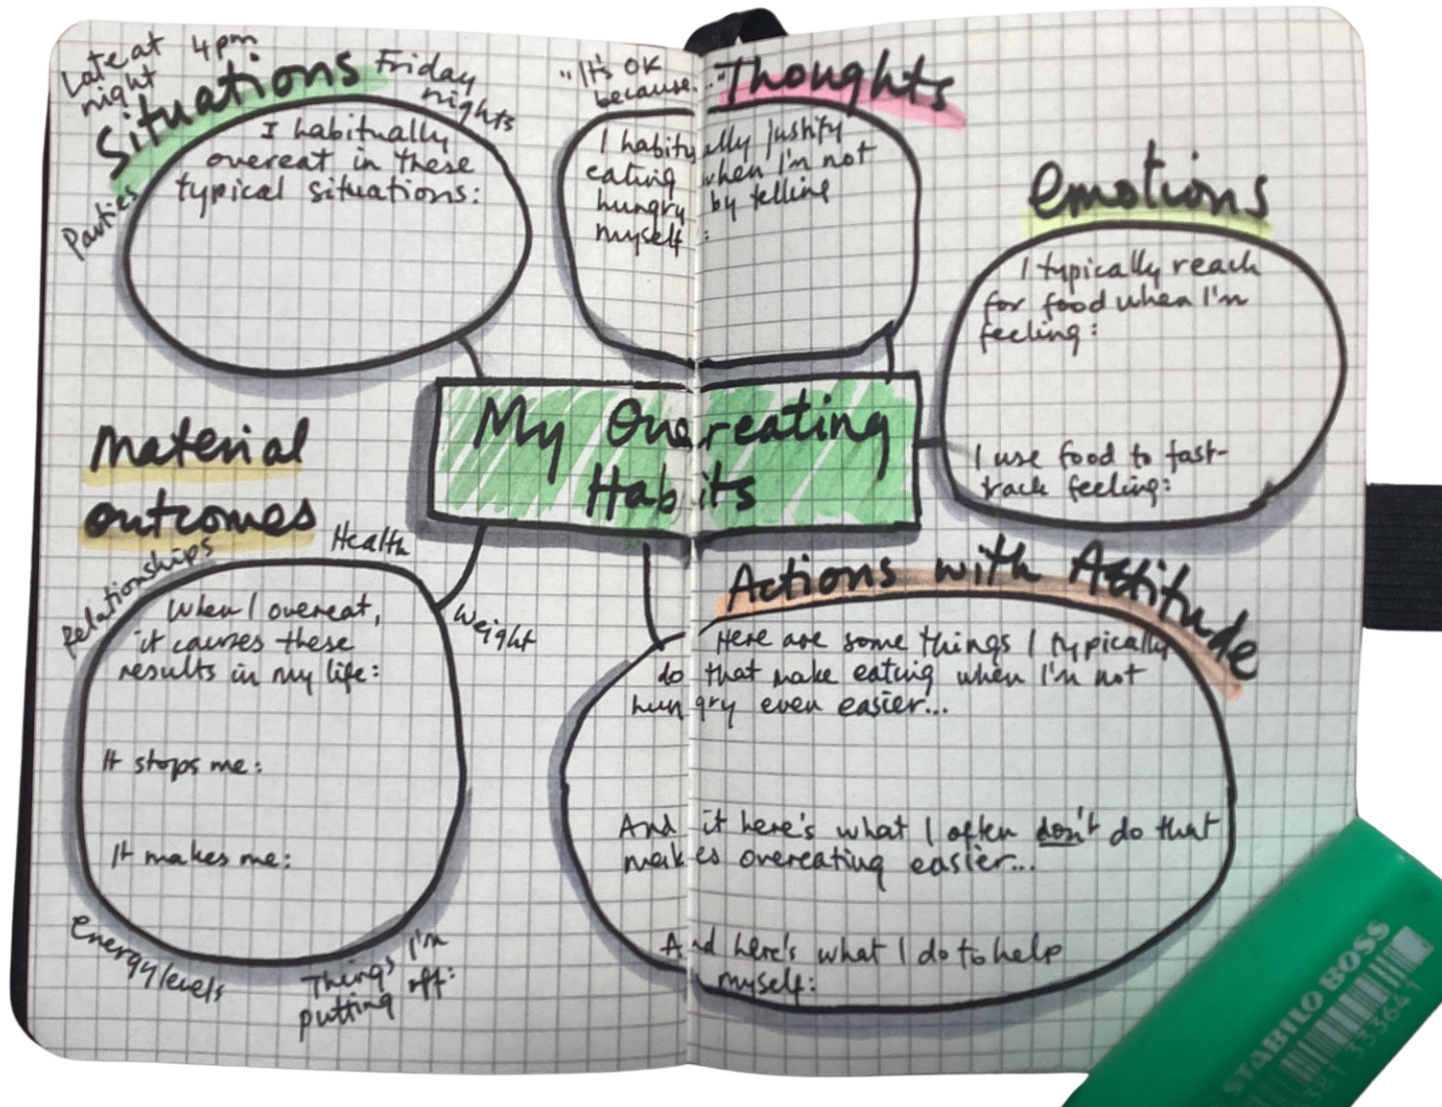 Late at
night
4pm
Friday
nights
Situations
Parties
I habitually
overeat in these
typical situations:
"It's OK
because..."
Thoughts
I habitually justify
eating when I'm not
hungry by telling
myself:
emotions
I typically reach
for food when I'm
feeling:
I use food to fast-
track feeling:
My Overeating
Habits
material
outcomes
Relationships
Health
Weight
When I overeat,
it causes these
results in my life:
It stops me:
It makes me:
Energy levels
Things I'm
putting off:
Actions with Attitude
Here are some things I typically
do that make eating when I'm not
hungry even easier...
And it here's what I often don't do that
makes overeating easier...
And here's what I do to help
myself:
STABILO BOSS
381 333641